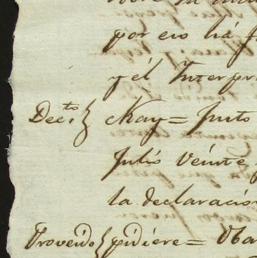 por eso há f
y él Interpr
Decto} Kay = Justo
Julio veinte y
la declaración
Proveido} pidiere = Oba